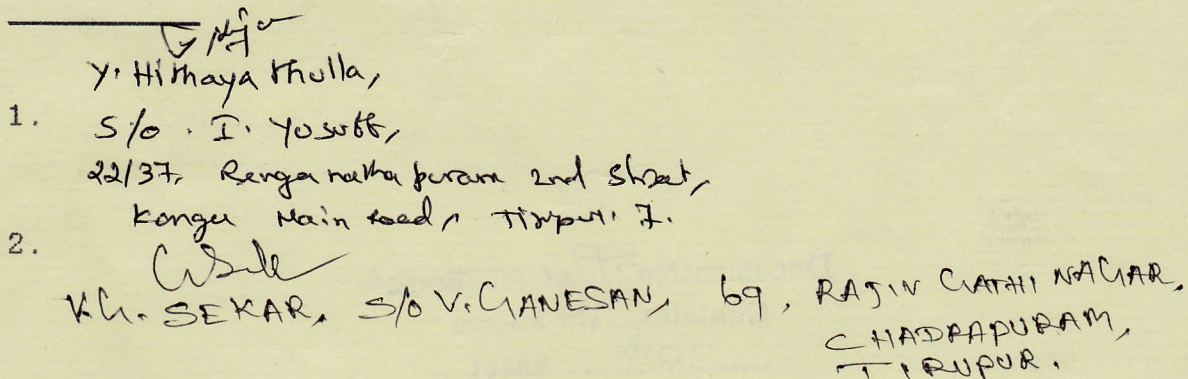 Y. Hithayathulla,
1. S/o. I. Yusuff,
22/37, Renganathapuram 2nd Street,
Kongu Main Road, Tirupur. 7.
2.
V.G. SEKAR, S/o V. GANESAN, 69, RAJIV GATHI NAGAR,
CHADRAPURAM,
TIRUPUR.